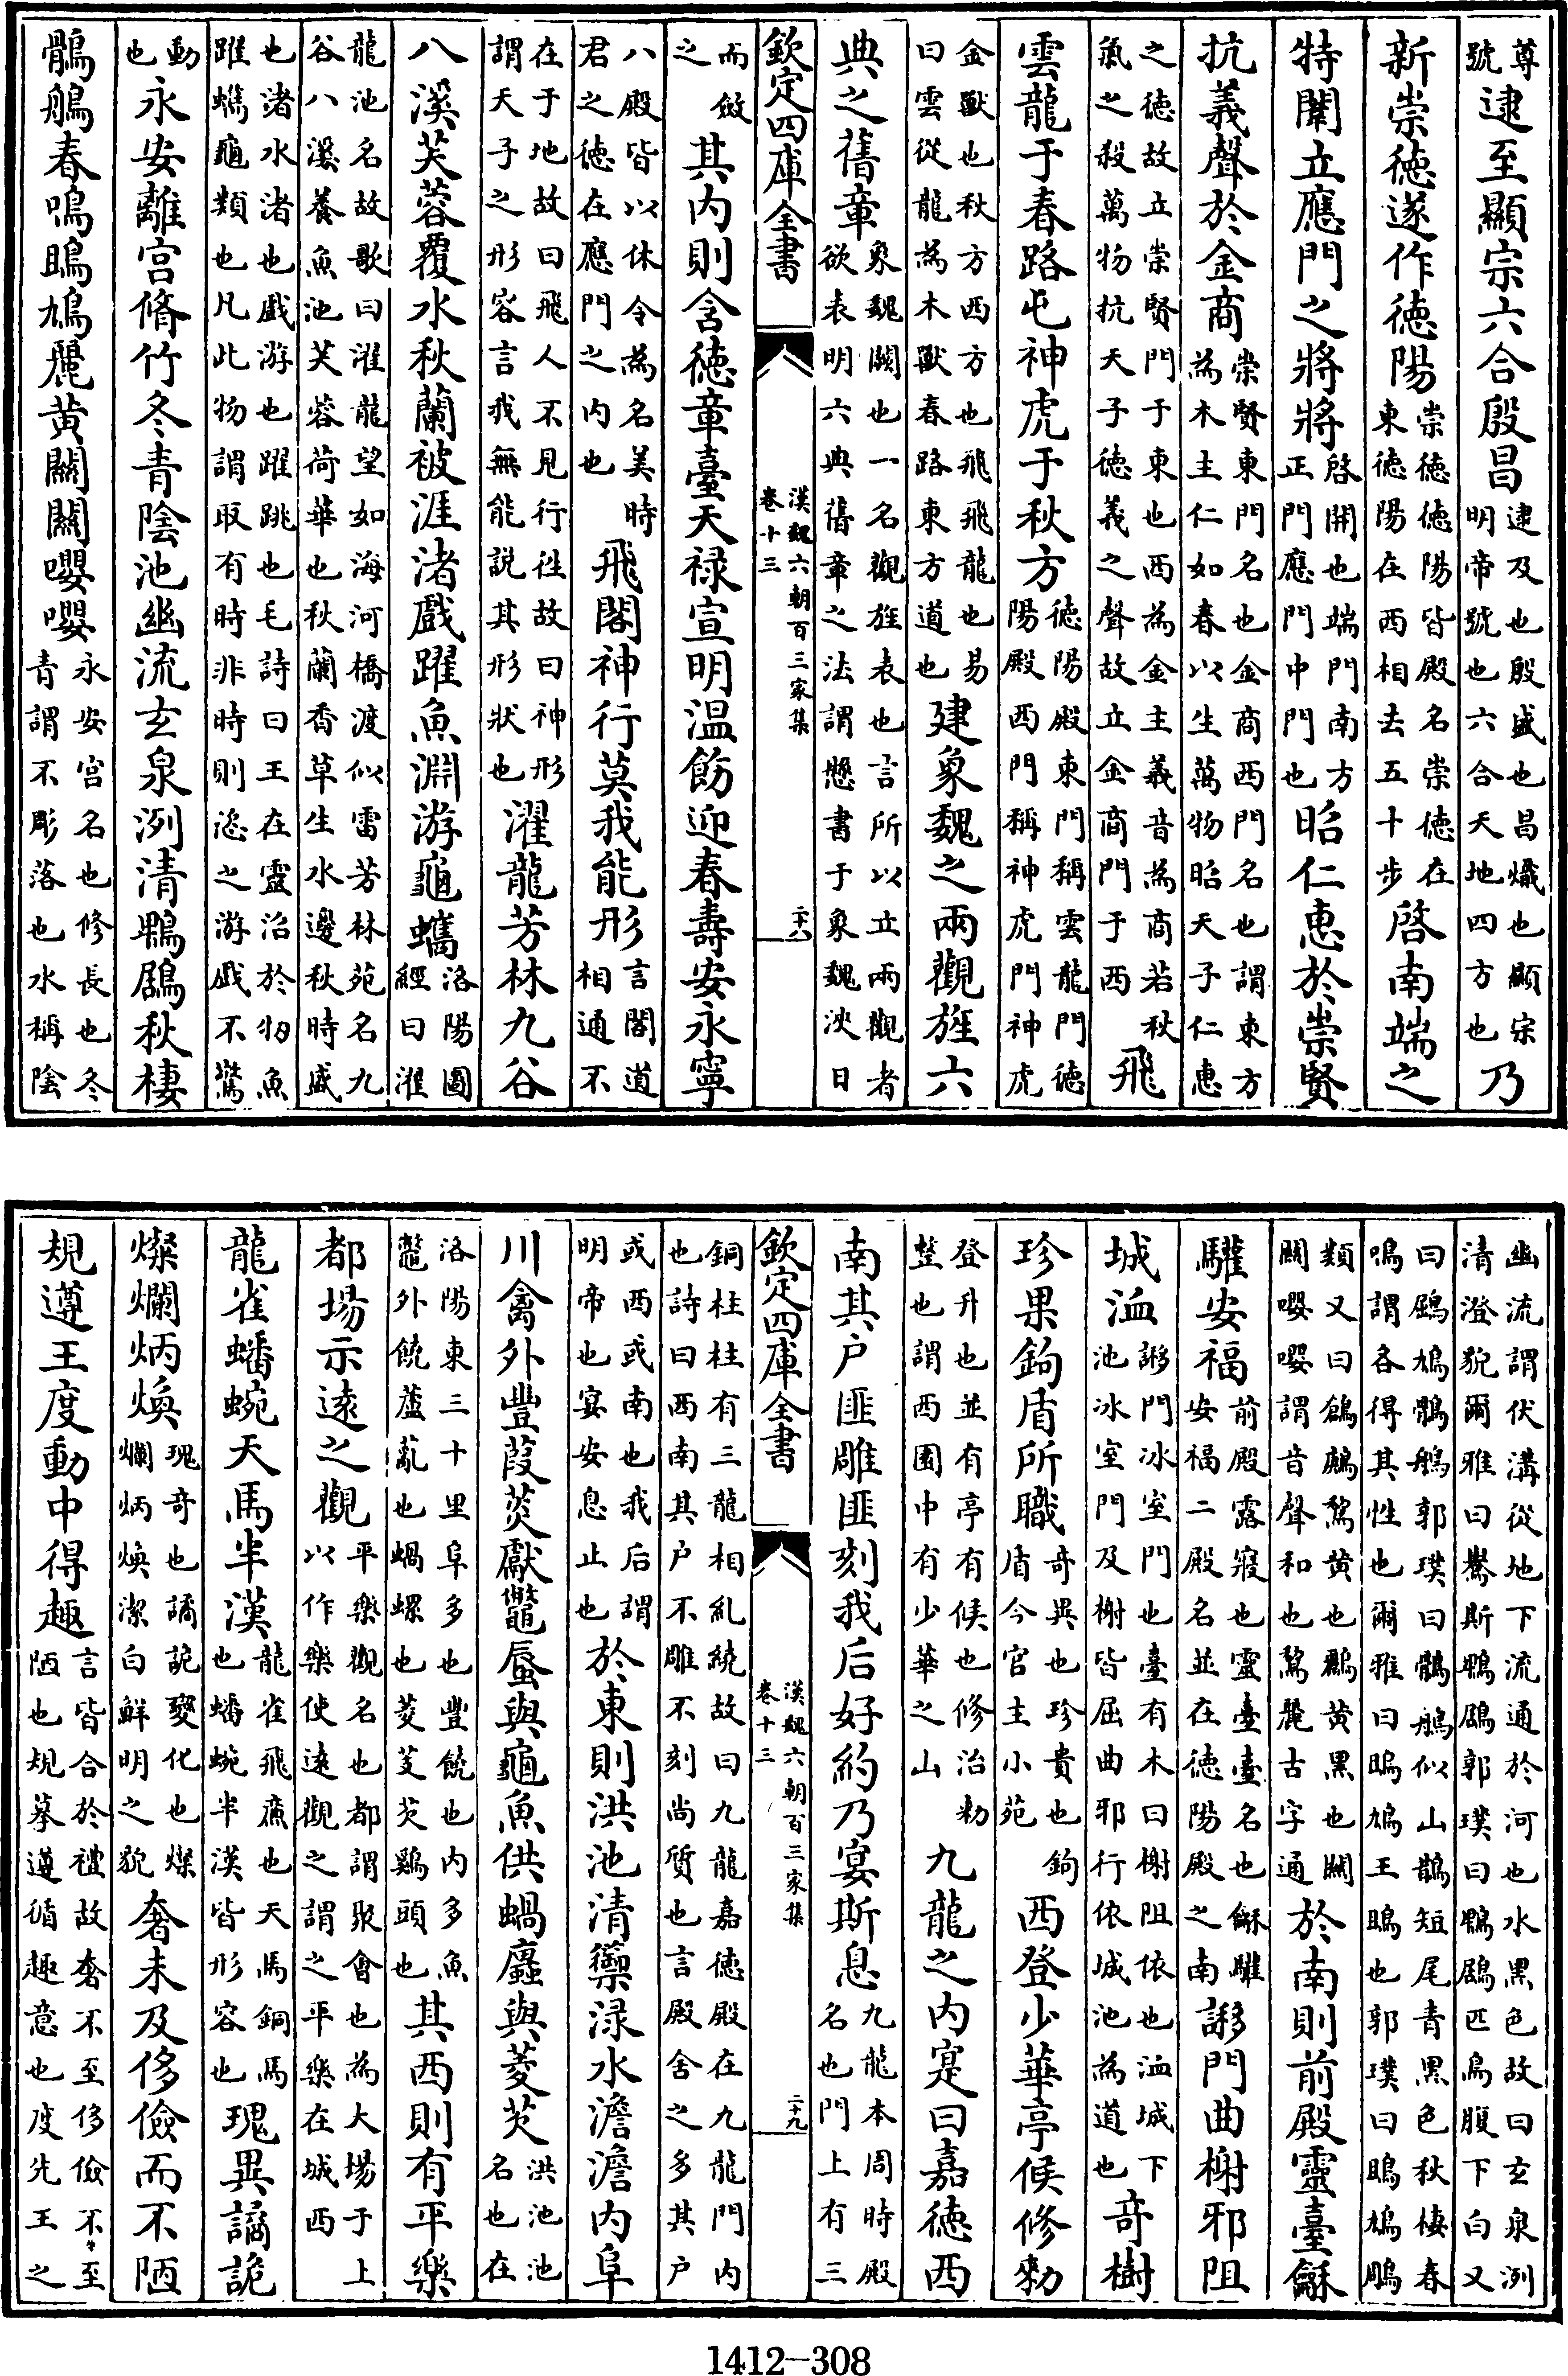 尊號逮至顯宗六合殷昌逮及也殷盛也昌熾也顯宗明帝號也六合天地四方也乃
新崇徳遂作徳陽崇徳徳陽皆殿名崇徳在東徳陽在西相去五十步啓南端之
特闈立應門之將將啓開也端門南方正門應門中門也昭仁惠於崇賢
抗義聲於金商崇賢東門名也金商西門名也謂東方為木主仁如春以生萬物昭天子仁惠
之徳故立崇賢門于東也西為金主義音為商若秋氣之殺萬物抗天子徳義之聲故立金商門于西飛
雲龍于春路屯神虎于秋方徳陽殿東門稱雲龍門徳陽殿西門稱神虎門神虎
金獸也秋方西方也飛飛龍也易曰雲從龍為木獸春路東方道也建象魏之兩觀旌六
典之舊章象魏闕也一名觀旌表也言所以立兩觀者欲表明六典舊章之法謂懸書于象魏浹日
欽定四庫全書 漢魏六朝百三家集 卷十三 二十八
而斂之其内則含徳章臺天禄宣明温飭迎春壽安永寧
八殿皆以休令為名美時君之徳在應門之内也飛閣神行莫我能形言閣道相通不
在于地故曰飛人不見行徃故曰神形謂天子之形容言我無能說其形狀也濯龍芳林九谷
八溪芙蓉覆水秋蘭被涯渚戲躍魚淵游龜蠵洛陽圖經曰濯
龍池名故歌曰濯龍望如海河橋渡似雷芳林苑名九谷八溪養魚池芙蓉荷華也秋蘭香草生水邊秋時盛
也渚水渚也戲游也躍跳也毛詩曰王在靈沼於牣魚躍蠵龜類也凡此物謂取有時非時則恣之游戲不驚
動也永安離宮脩竹冬青陰池幽流玄泉洌清鵯鶋秋棲
鶻鵃春鳴鴡鳩麗黄關關嚶嚶永安宫名也修長也冬青謂不彫落也水稱陰
幽流謂伏溝從地下流通於河也水黑色故曰玄泉洌清澄貌爾雅曰鸒斯鵯鶋郭璞曰鵯鶋匹鳥腹下白又
曰鶋鳩鶻鵃郭璞曰鶻鵃似山鵲短尾青黑色秋棲春鳴謂各得其性也爾雅曰鴡鳩王鴡也郭璞曰鴡鳩鵰
類又曰鶬鶊鵹黄也鸝黄黑也關關嚶嚶謂音聲和也鵹麗古字通於南則前殿靈臺龢
驩安福前殿露寢也靈臺臺名也龢驩安福二殿名並在徳陽殿之南謻門曲榭邪阻
城洫謻門冰室門也臺有木曰榭阻依也洫城下池冰室門及榭皆屈曲邪行依城池為道也竒樹
珍果鉤盾所職竒異也珍貴也鉤盾今官主小苑西登少華亭候修勑
登升也並有亭有候也修治也勑整也謂西園中有少華之山九龍之内寔曰嘉徳西
南其户匪雕匪刻我后好約乃宴斯息九龍本周時殿名也門上有三
欽定四庫全書 漢魏六朝百三家集 卷十三 二十九
銅柱柱有三龍相糺繞故曰九龍嘉徳殿在九龍門内也詩曰西南其户不雕不刻尚質也言殿舍之多其户
或西或南也我后謂明帝也宴安息止也於東則洪池清籞渌水澹澹内阜
川禽外豐葭菼獻鼈蜃與龜魚供蝸蠯與菱芡洪池池名也在
洛陽東三十里阜多也豐饒也内多魚鼈外饒蘆薍也蝸螺也菱芰芡鷄頭也其西則有平樂
都場示遠之觀平樂觀名也都謂聚會也為大場于上以作樂使遠觀之謂之平樂在城西
龍雀蟠蜿天馬半漢龍雀飛廉也天馬銅馬也蟠蜿半漢皆形容也瑰異譎詭
燦爛炳煥瑰奇也譎詭變化也燦爛炳煥潔白鮮明之貌奢未及侈儉而不陋
規遵王度動中得趣言皆合於禮故奢不至侈儉不至陋也規摹遵循趣意也度先王之
1412-308